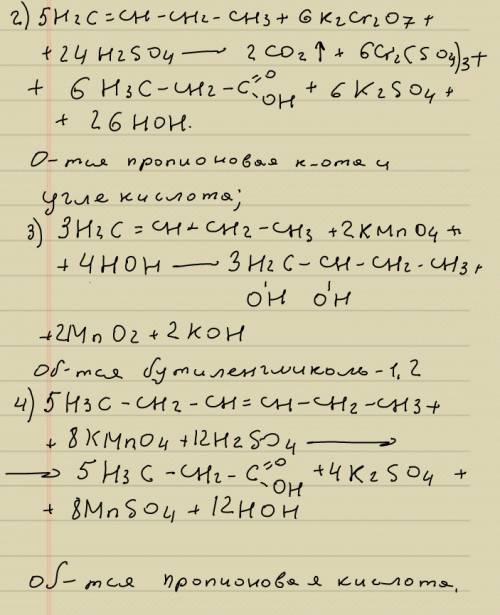 2) 5H2C=CH-CH2-CH3+ 6K2Cr2O7+
+24H2SO4 — 2CO2↑ + 6Cr2(SO4)3+
+ 6 H3C-CH2-C=O OH + 6K2SO4+
+ 26 HOH.
О-тся пропионовая к-ота и
угле кислота;
3) 3H2C=CH-CH2-CH3 +2KMnO4+
+4HOH — 3H2C-CH-CH2-CH3+
OH OH
+2MnO2+2KOH
Об-тся бутиленгликоль-1,2
4) 5H3C-CH2-CH=CH-CH2-CH3+
+ 8KMnO4+12H2SO4 →
→ 5H3C-CH2-C=O OH +4K2SO4 +
+ 8MnSO4+12HOH
об-тся пропионовая кислота.